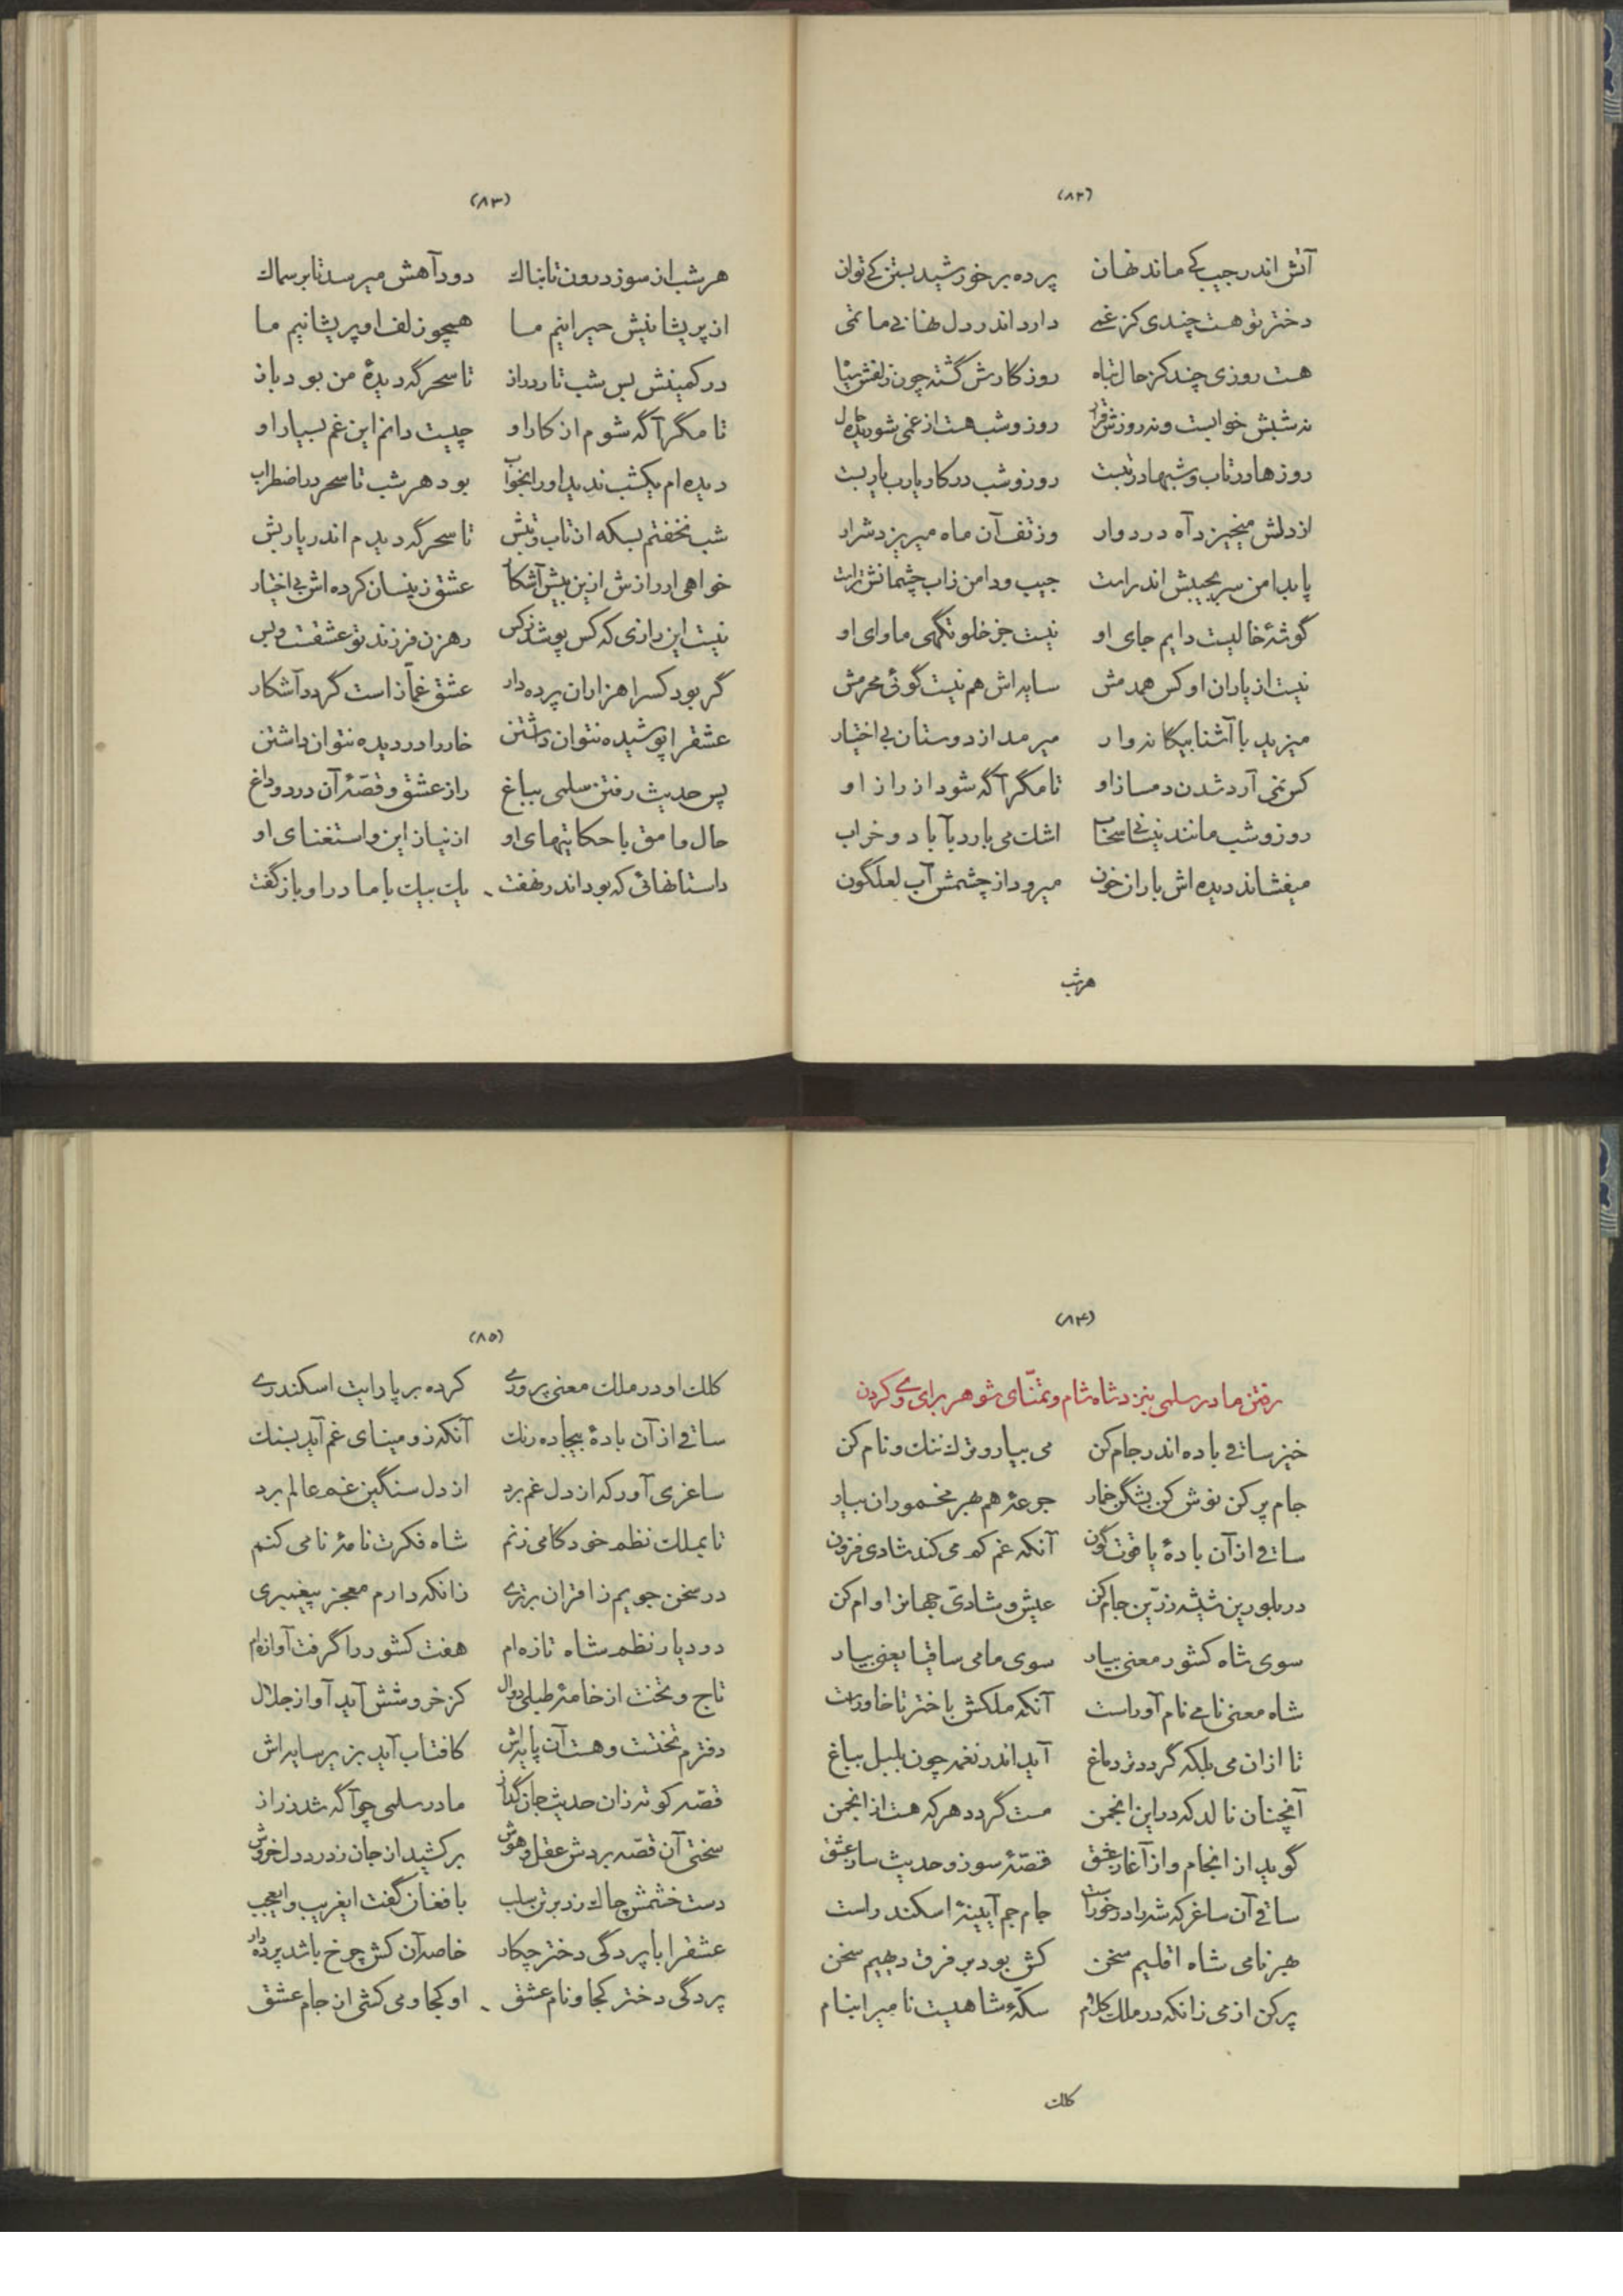 (۸۲)
آتش اندر جیب کے ماند نهان پرده بر خورشید بستن کے توان
دختر تو هست چندی کز غمے دارد اندر دل نهانی ماتمی
هست روزی چند کز حال تباه روزگارش گشته چون زلفش سیاه
نه شبش خوابست و نه روزش قرار روز و شب هست از غمی شوریده
روزها در تاب و شبها در تبست روز و شب در کار یارب یاربست
از دلش میخیزد آه دردوار وز تف آن ماه میریزد شرار
پا بدامن سر بجیبش اندر است جیب و دامن زاب چشمانش تراست
گوشهٔ خالیست دایم جای او نیست جز خلوتگهی ماوای او
نیست از یاران او کس همدمش سایه اش هم نیست گوئی محرمش
میزید با آشنا بیگانه وار میرمد از دوستان بی اختیار
کس نمی آرد شدن دمساز او تا مگر آگه شود از راز او
روز و شب مانند نیسانی سحاب اشک می بارد بآباد و خراب
میفشاند دیده اش باران خون میرود از چشمش آب لعلگون
هرشب
(۸۳)
هرشب از سوز درون تابناک دود آهش میرسد تا بر سماک
از پریشانیش حیرانیم ما همچو زلف او پریشانیم ما
در کمینش بس شب تار دراز تا سحرگه دیدهٔ من بود باز
تا مگر آگه شوم از کار او چیست دانم این غم بسیار او
دیده ام یکشب ندید او را بخواب بود هرشب تا سحر در اضطراب
شب نخفتم بسکه از تاب و تبش تا سحرگه دیدم اندر یاربش
خواهی ار رازش ازین بیش آشکار عشق زینسان کرده اش بی اختیار
نیست این رازی که کس پوشد ز کس رهزن فرزند تو عشقست و بس
گر بود کس را هزاران پرده دار عشق غمّاز است گردد آشکار
عشقرا پوشیده نتوان داشتن خار را در دیده نتوان داشتن
پس حدیث رفتن سلمی بباغ راز عشق و قصّهٔ آن درد و داغ
حال وامق با حکایتهای او از نیاز این و استغنای او
داستانهائی که بود اندر نهفت یک بیک با مادر او باز گفت
(۸۴)
رفتن مادر سلمی بنزد شاه شام و تمنّای شوهر برای وے کردن
خیز ساقی باده اندر جام کن می بیار و ترک ننک و نام کن
جام پر کن نوش کن بشکن خمار جرعهٔ هم بهر مخموران بیار
ساقی از آن بادهٔ یاقوت گون آنکه غم کم می کند شادی فزون
در بلورین شیشه زرّین جام کن عیش و شادیّ جهانرا وام کن
سوی شاه کشور معنی بیار سوی ما می ساقیا یعنی بیار
شاه معنی نامے نام آور است آنکه ملکش باختر تا خاور است
تا ازان می بلکه گردد تر دماغ آید اندر نغمه چون بلبل بباغ
آنچنان نالد که در این انجمن مست گردد هرکه هست از انجمن
گوید از انجام و از آغاز عشق قصّهٔ سوز و حدیث ساز عشق
ساقی آن ساغر که شه را در خور است جام جم آیینهٔ اسکندر است
بهر نامی شاه اقلیم سخن کش بود بر فرق دیهیم سخن
پر کن از می زانکه در ملک کلام سکّهٔ شاهیست نامی را بنام
کلک
(۸۵)
کلک او در ملک معنی پروری کرده بر پا رایت اسکندرے
ساقی از آن بادهٔ بیجاده رنک آنکه زو مینای غم آید بسنک
ساغری آور که از دل غم برد از دل سنگین غم عالم برد
تا بملک نظم خود کامی زنم شاه فکرت نامهٔ نامی کنم
در سخن جویم ز اقران برترے زانکه دارم معجز پیغمبری
در دیار نظم شاه تازه ام هفت کشور را گرفت آوازه ام
تاج و تخت از خامهٔ طبلی دوال کز خروشش آید آواز جلال
دفترم تختست و هست آن پایه اش کافتاب آید بزیر سایه اش
قصّه کوته زان حدیث جان گداز مادر سلمی چو آگه شد ز راز
سختی آن قصّه بردش عقل و هوش برکشید از جان ز درد دل خروش
دست خشمش چاک زد بر تن سلب با فغان گفت ایغریب و ایعجب
عشقرا با پردگی دختر چکار خاصه آن کش چرخ باشد پرده دار
پردگی دختر کجا و نام عشق او کجا و می کشی از جام عشق